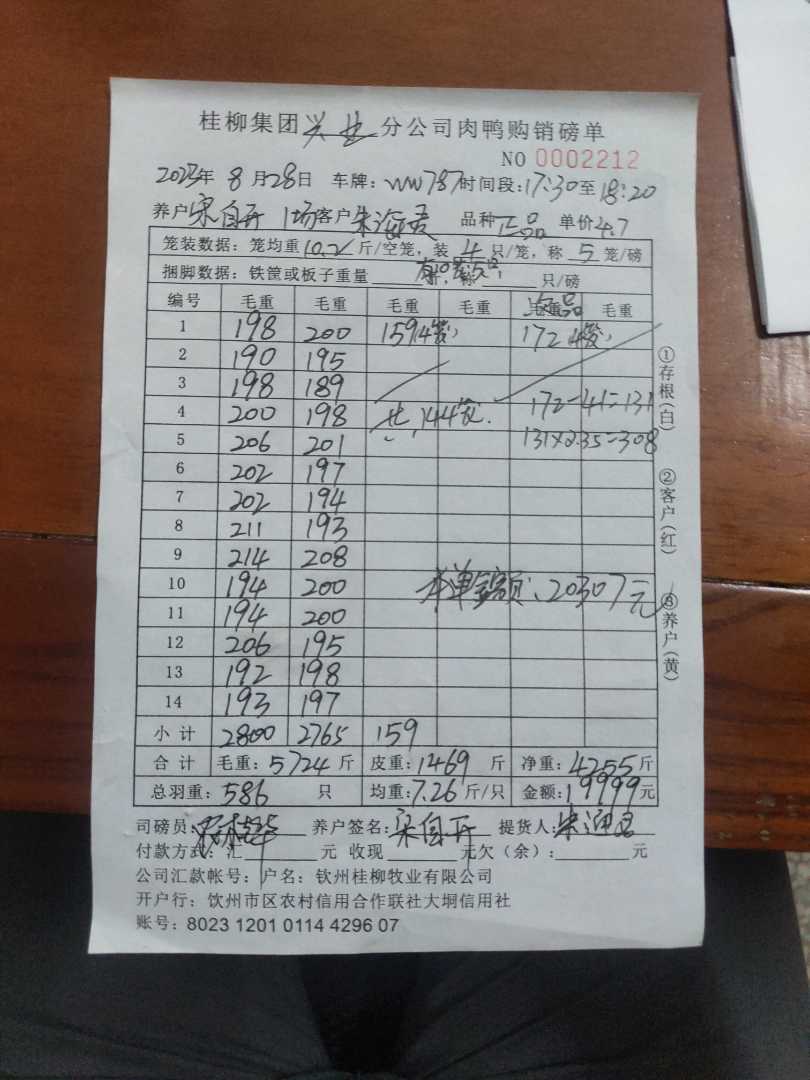 桂柳集团兴业分公司肉鸭购销磅单
NO 0002212
2023年 8 月 28日 车牌: 787 时间段: 17:30 至 18:20
养户 宋自开 1场 客户 朱海 品种 正品 单价 4.7
笼装数据: 笼均重 10.2 斤/空笼, 装 4 只/笼, 称 5 笼/磅
捆脚数据: 铁筐或板子重量 只/磅
编号 毛重 毛重 毛重 毛重 毛重
1 198 200 159(4笼) 172 4笼
2 190 195
3 198 189
4 200 198 共144笼. 172-41=131
5 206 201 131×2.35=308
6 202 197
7 202 194
8 211 193
9 214 208
10 194 200 本单金额: 20307元
11 194 200
12 206 195
13 192 198
14 193 197
小 计 2800 2765 159
合 计 毛重: 5724 斤 皮重: 1469 斤 净重: 4255 斤
总羽重: 586 只 均重: 7.26 斤/只 金额: 19999 元
司磅员: 养户签名: 宋自开 提货人: 朱
付款方式: 汇 元 收现 元 欠（余）: 元
公司汇款帐号: 户名: 钦州桂柳牧业有限公司
开户行: 饮州市区农村信用合作联社大垌信用社
账号: 8023 1201 0114 4296 07
①存根(白)
②客户(红)
③养户(黄)